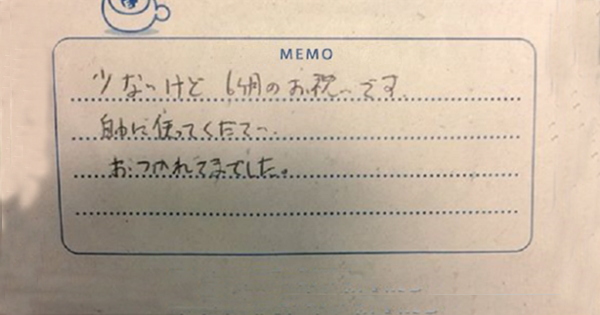 MEMO
少ないけど 6ヶ月のお祝いです.
自由に使ってください.
おつかれさまでした。